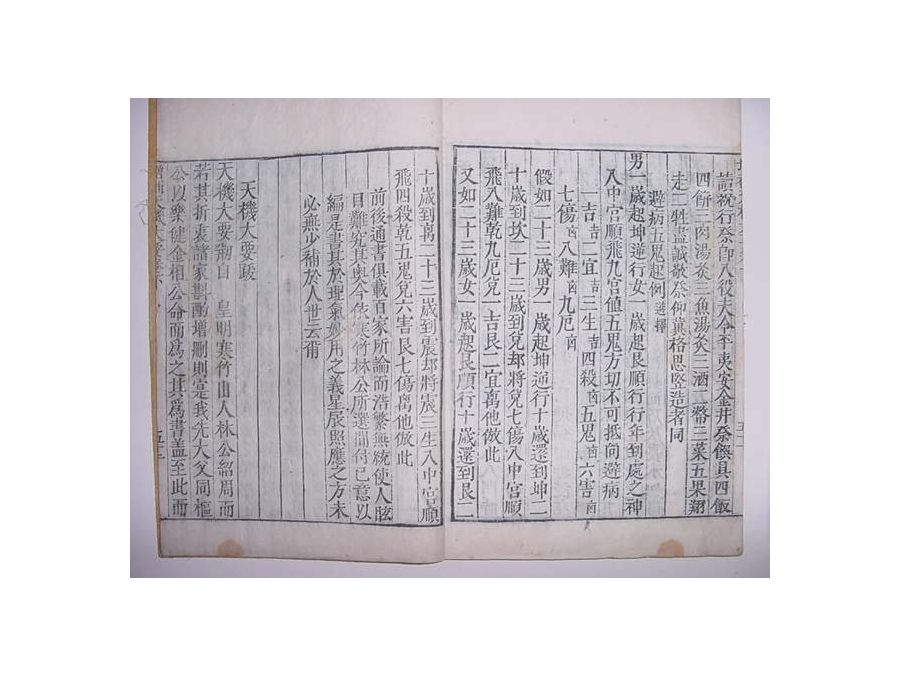 請祝行祭郎八役夫今平夷安金井祭饌具四飯
四餠三肉湯炙三魚湯炙三酒二幣三菜五果翔
走二牲盡誠敬祭仰冀格思堅造者同
避病五鬼起例 選擇
男一歲起坤逆行女一歲起艮順行行年到處之神
入中宮順飛九宮値五鬼方切不可抵向避病
一吉 吉 二宜 吉 三生 吉 四殺 凶 五鬼 凶 六害 凶
七傷 凶 八難 凶 九厄 凶
假如二十三歲男一歲起坤逆行十歲還到坤二
十歲到坎二十三歲到兌却將兌七傷入中宮順
飛入難乾九厄兌一吉艮二宜离他倣此
又如二十三歲女一歲起艮順行十歲還到艮二
十歲到离二十三歲到震却將震三生入中宮順
飛四殺乾五鬼兌六害艮七傷离他倣此
前後通書俱載百家所論而浩繁無統使人眩
目難究其奧今依寒竹林公所選間付已意以
編是書其於理氣妙用之義星辰照應之方未
必無少補於人世云爾
天機大要跋
天機大要刱自 皇明寒竹山人林公紹周而
若其折衷諸家斟酌增刪則寔我先大父同樞
公以樂健金相公命而爲之其爲書盖至此而